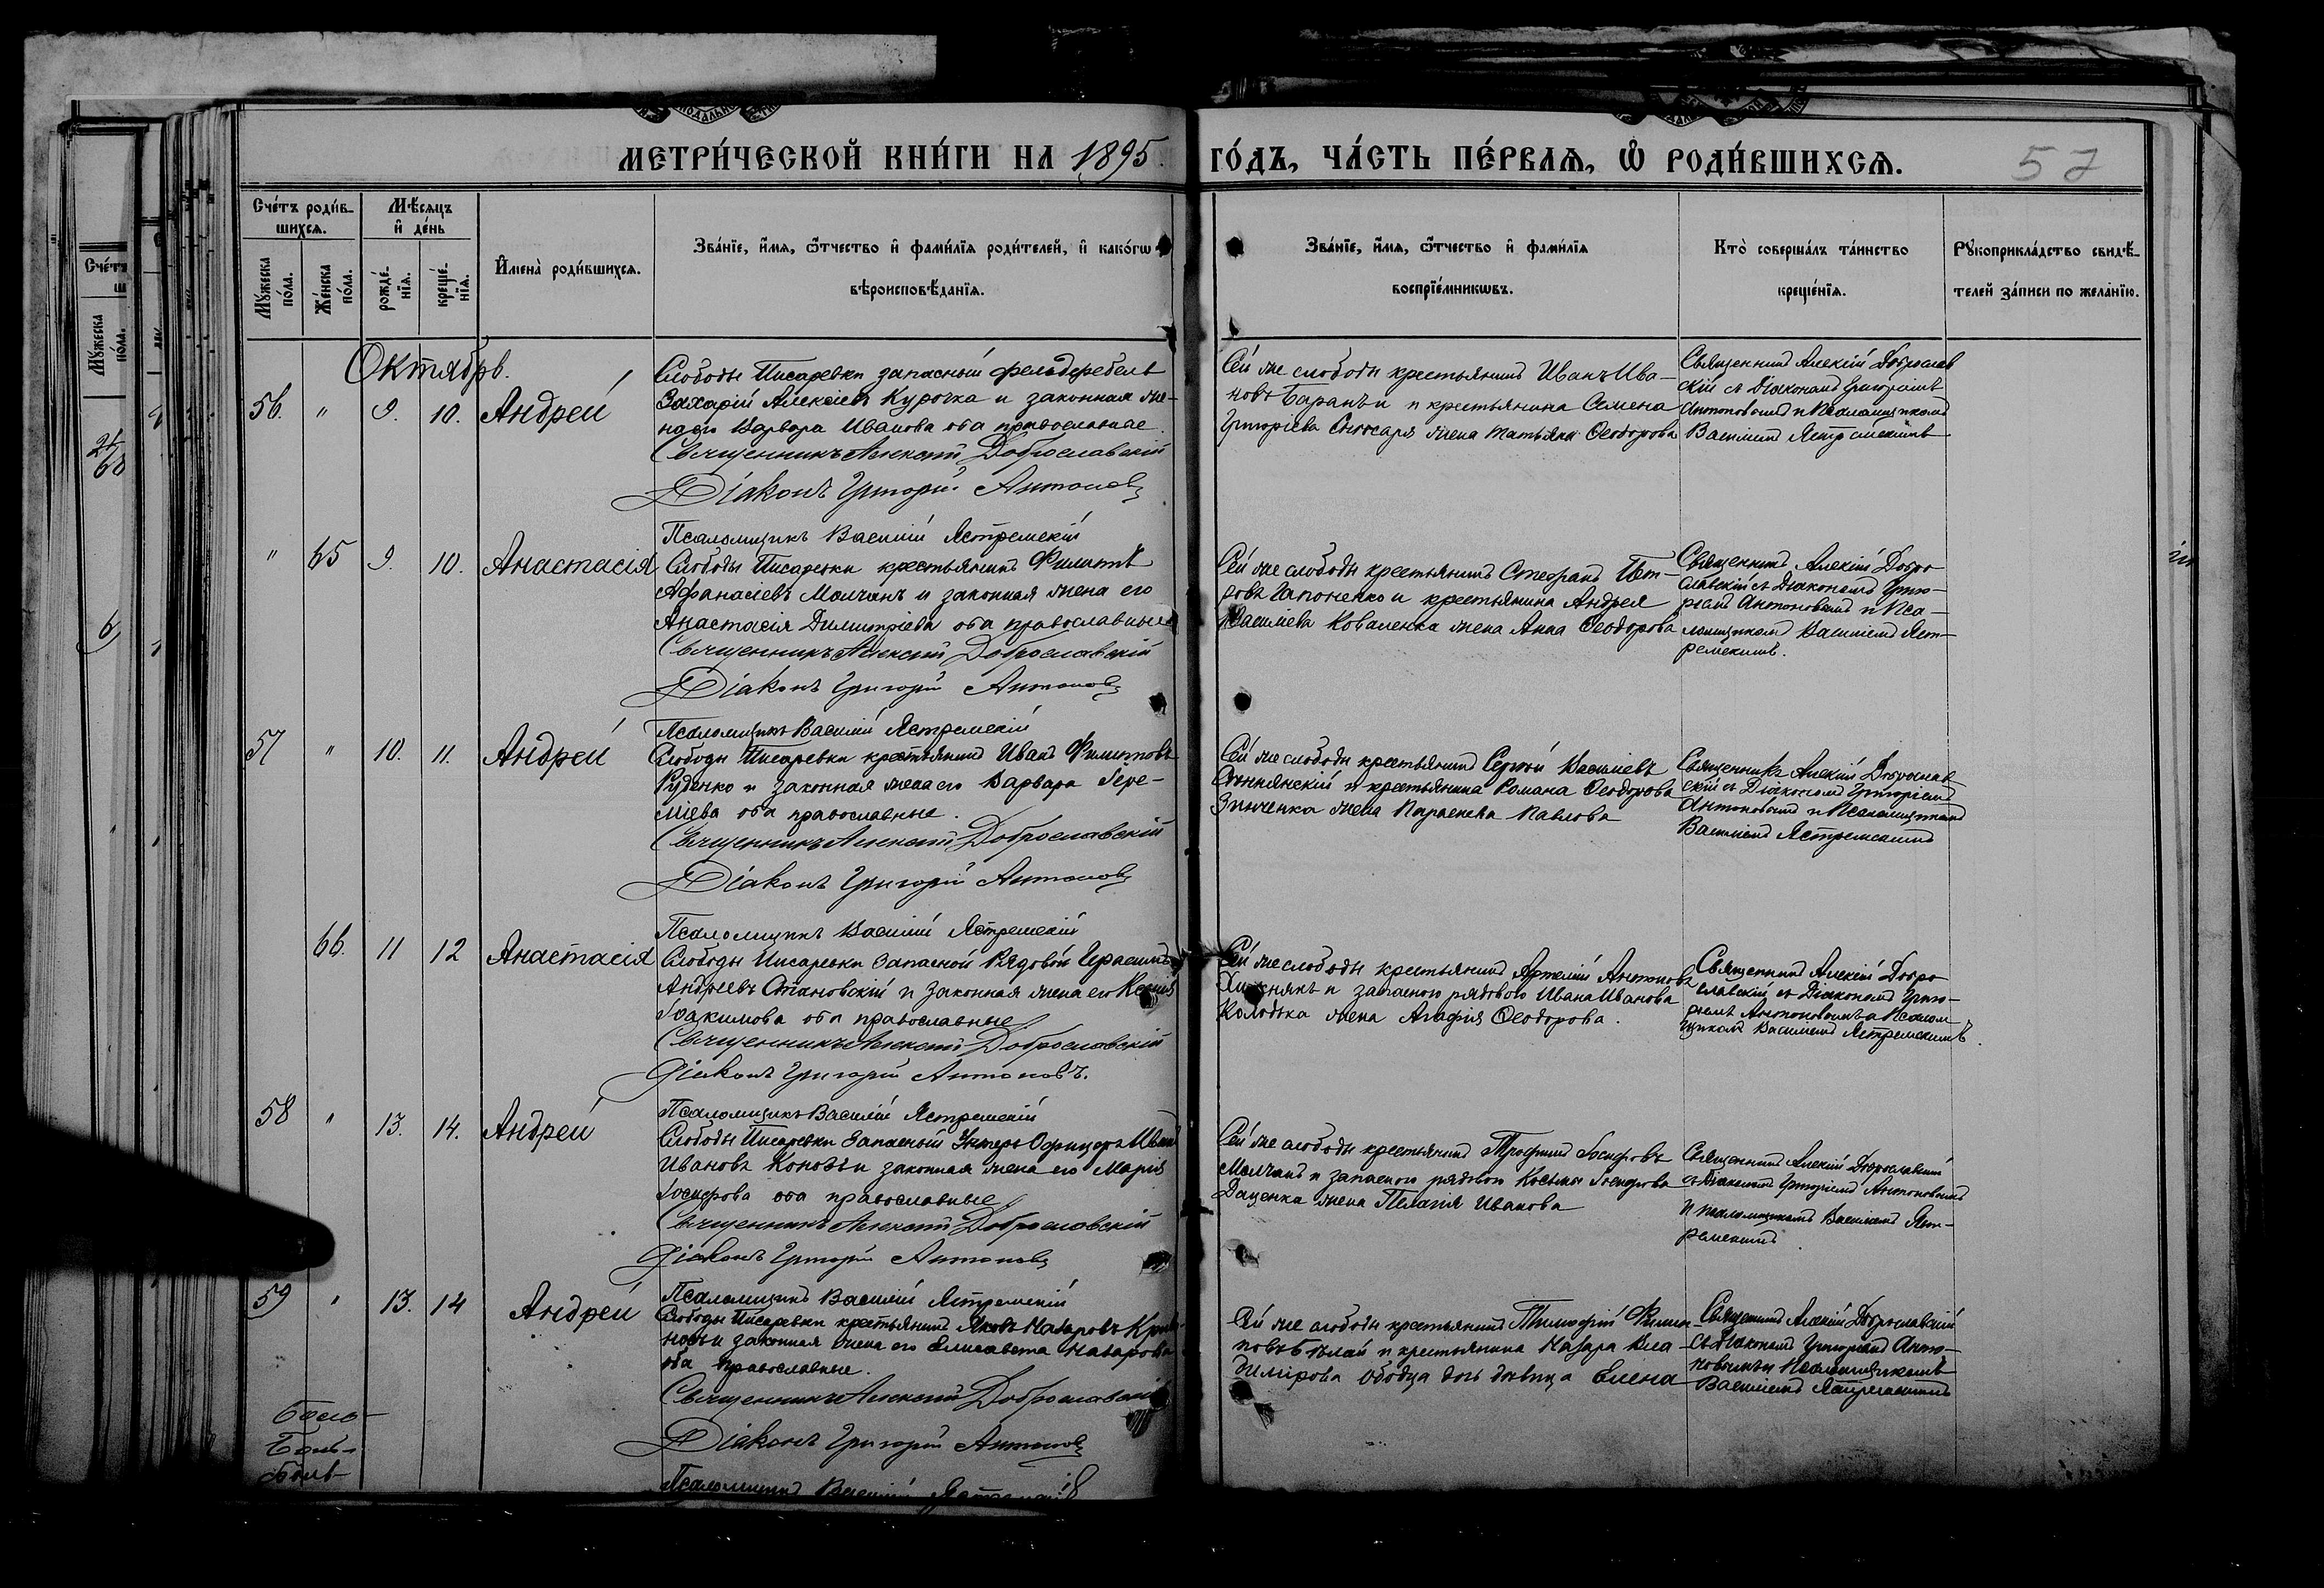 МЕТРИ́ЧЕСКОЙ КНИ́ГИ НА 1895.
ГО́ДЪ, ЧА́СТЬ ПЕ́РВАѦ, Ѡ҆ РОДИ́ВШИХСѦ.
57
Сче́тъ роди́в-
шихсѧ.
Мѣ́сѧцъ
и҆ де́нь
Мꙋ́жеска
по́ла.
Же́нска
по́ла.
рожде́-
нїѧ.
креще́-
нїѧ.
И҆мена̀ роди́вшихсѧ.
Зва́нїе, и҆́мѧ, ѻ҆́тчество и҆ фами́лїѧ роди́телей, и҆ како́гѡ
вѣроисповѣ́данїѧ.
Зва́нїе, и҆́мѧ, ѻ҆́тчество и҆ фами́лїѧ
воспрїе́мникѡвъ.
Кто̀ соверша́лъ та́инство
креще́нїѧ.
Рꙋкоприкла́дство свидѣ́-
телей за́писи по жела́нїю.
Октябрь.
56. " 9. 10. Андрей
Слободы Писаревки запасный фельдфебель
Захарій Алексѣевъ Курочка и законная же-
на его Варвара Иванова оба православные.
Священникъ Алексій Доброславскій
Діаконъ Григорій Антоновъ
Псаломщикъ Василій Ястремскій
Сей же слободы крестьянинъ Иванъ Ива-
новъ Баранъ и крестьянина Семена
Григоріева Слюсаря жена Татьяна Ѳеодорова
Священникъ Алексій Доброслав
скій съ Діакономъ Григоріемъ
Антоновымъ и Псаломщикомъ
Василіемъ Ястремскимъ
" 65 9. 10. Анастасія
Слободы Писаревки крестьянинъ Филиппъ
Афанасіевъ Молчанъ и законная жена его
Анастасія Димитріева оба православные
Священникъ Алексій Доброславскій
Діаконъ Григорій Антоновъ
Псаломщикъ Василій Ястремскій
Сей же слободы крестьянинъ Стефанъ Пет-
ровъ Гапоненко и крестьянина Андрея
Василіева Коваленка жена Анна Ѳеодорова
Священникъ Алексій Добро
славскій съ Діакономъ Григо-
ріемъ Антоновымъ и Пса-
ломщикомъ Василіемъ Яст-
ремскимъ.
57 " 10. 11. Андрей
Слободы Писаревки крестьянинъ Иванъ Филипповъ
Руденко и законная жена его Варвара Іере-
міева оба православные.
Священникъ Алексій Доброславскій
Діаконъ Григорій Антоновъ
Псаломщикъ Василій Ястремскій
Сей же слободы крестьянинъ Сергѣй Василіевъ
и крестьянина Романа Ѳеодорова
Зинченка жена Параскева Павлова
Священникъ Алексій Доброслав
скій съ Діакономъ Григоріемъ
Антоновымъ и Псаломщикомъ
Василіемъ Ястремскимъ
66. 11 12 Анастасія
Слободы Писаревки Запасной Рядовой Герасимъ
Андреевъ Становскій и законная жена его Ксенія
Іоакимова оба православные
Священникъ Алексій Доброславскій
Діаконъ Григорій Антоновъ.
Псаломщикъ Василій Ястремскій
Сей же слободы крестьянинъ Артемій Антоновъ
и запасного рядового Ивана Иванова
Колодка жена Агафія Ѳеодорова.
Священникъ Алексій Добро
славскій съ Діакономъ Григо-
ріемъ Антоновымъ и Псалом
щикомъ Василіемъ Ястремскимъ.
58 " 13. 14. Андрей
Слободы Писаревки Запасный Унтеръ Офицеръ Иванъ
Ивановъ и законная жена его Марія
Іосифова оба православные
Священникъ Алексій Доброславскій
Діаконъ Григорій Антоновъ
Псаломщикъ Василій Ястремскій
Сей же слободы крестьянинъ Трофимъ Іосифовъ
Молчанъ и запасного рядового Косьмы Іосифова
Даценка жена Пелагія Иванова
Священникъ Алексій Доброславскій
съ Діакономъ Григоріемъ Антоновымъ
и псаломщикомъ Василіемъ Яст-
ремскимъ.
59 " 13. 14 Андрей
Слободы Писаревки крестьянинъ Яковъ Назаровъ
и законная жена его Елисавета Назарова
оба православные.
Священникъ Алексій Доброславскій
Діаконъ Григорій Антоновъ
Псаломщикъ Василій Ястремскій
Сей же слободы крестьянинъ Тимофій Филип-
повъ Бѣлай и крестьянина Назара Вла-
димірова дочь дѣвица Елена
Священникъ Алексій Доброславскій
съ Діакономъ Григоріемъ Анто-
новымъ и Псаломщикомъ
Василіемъ Ястремскимъ